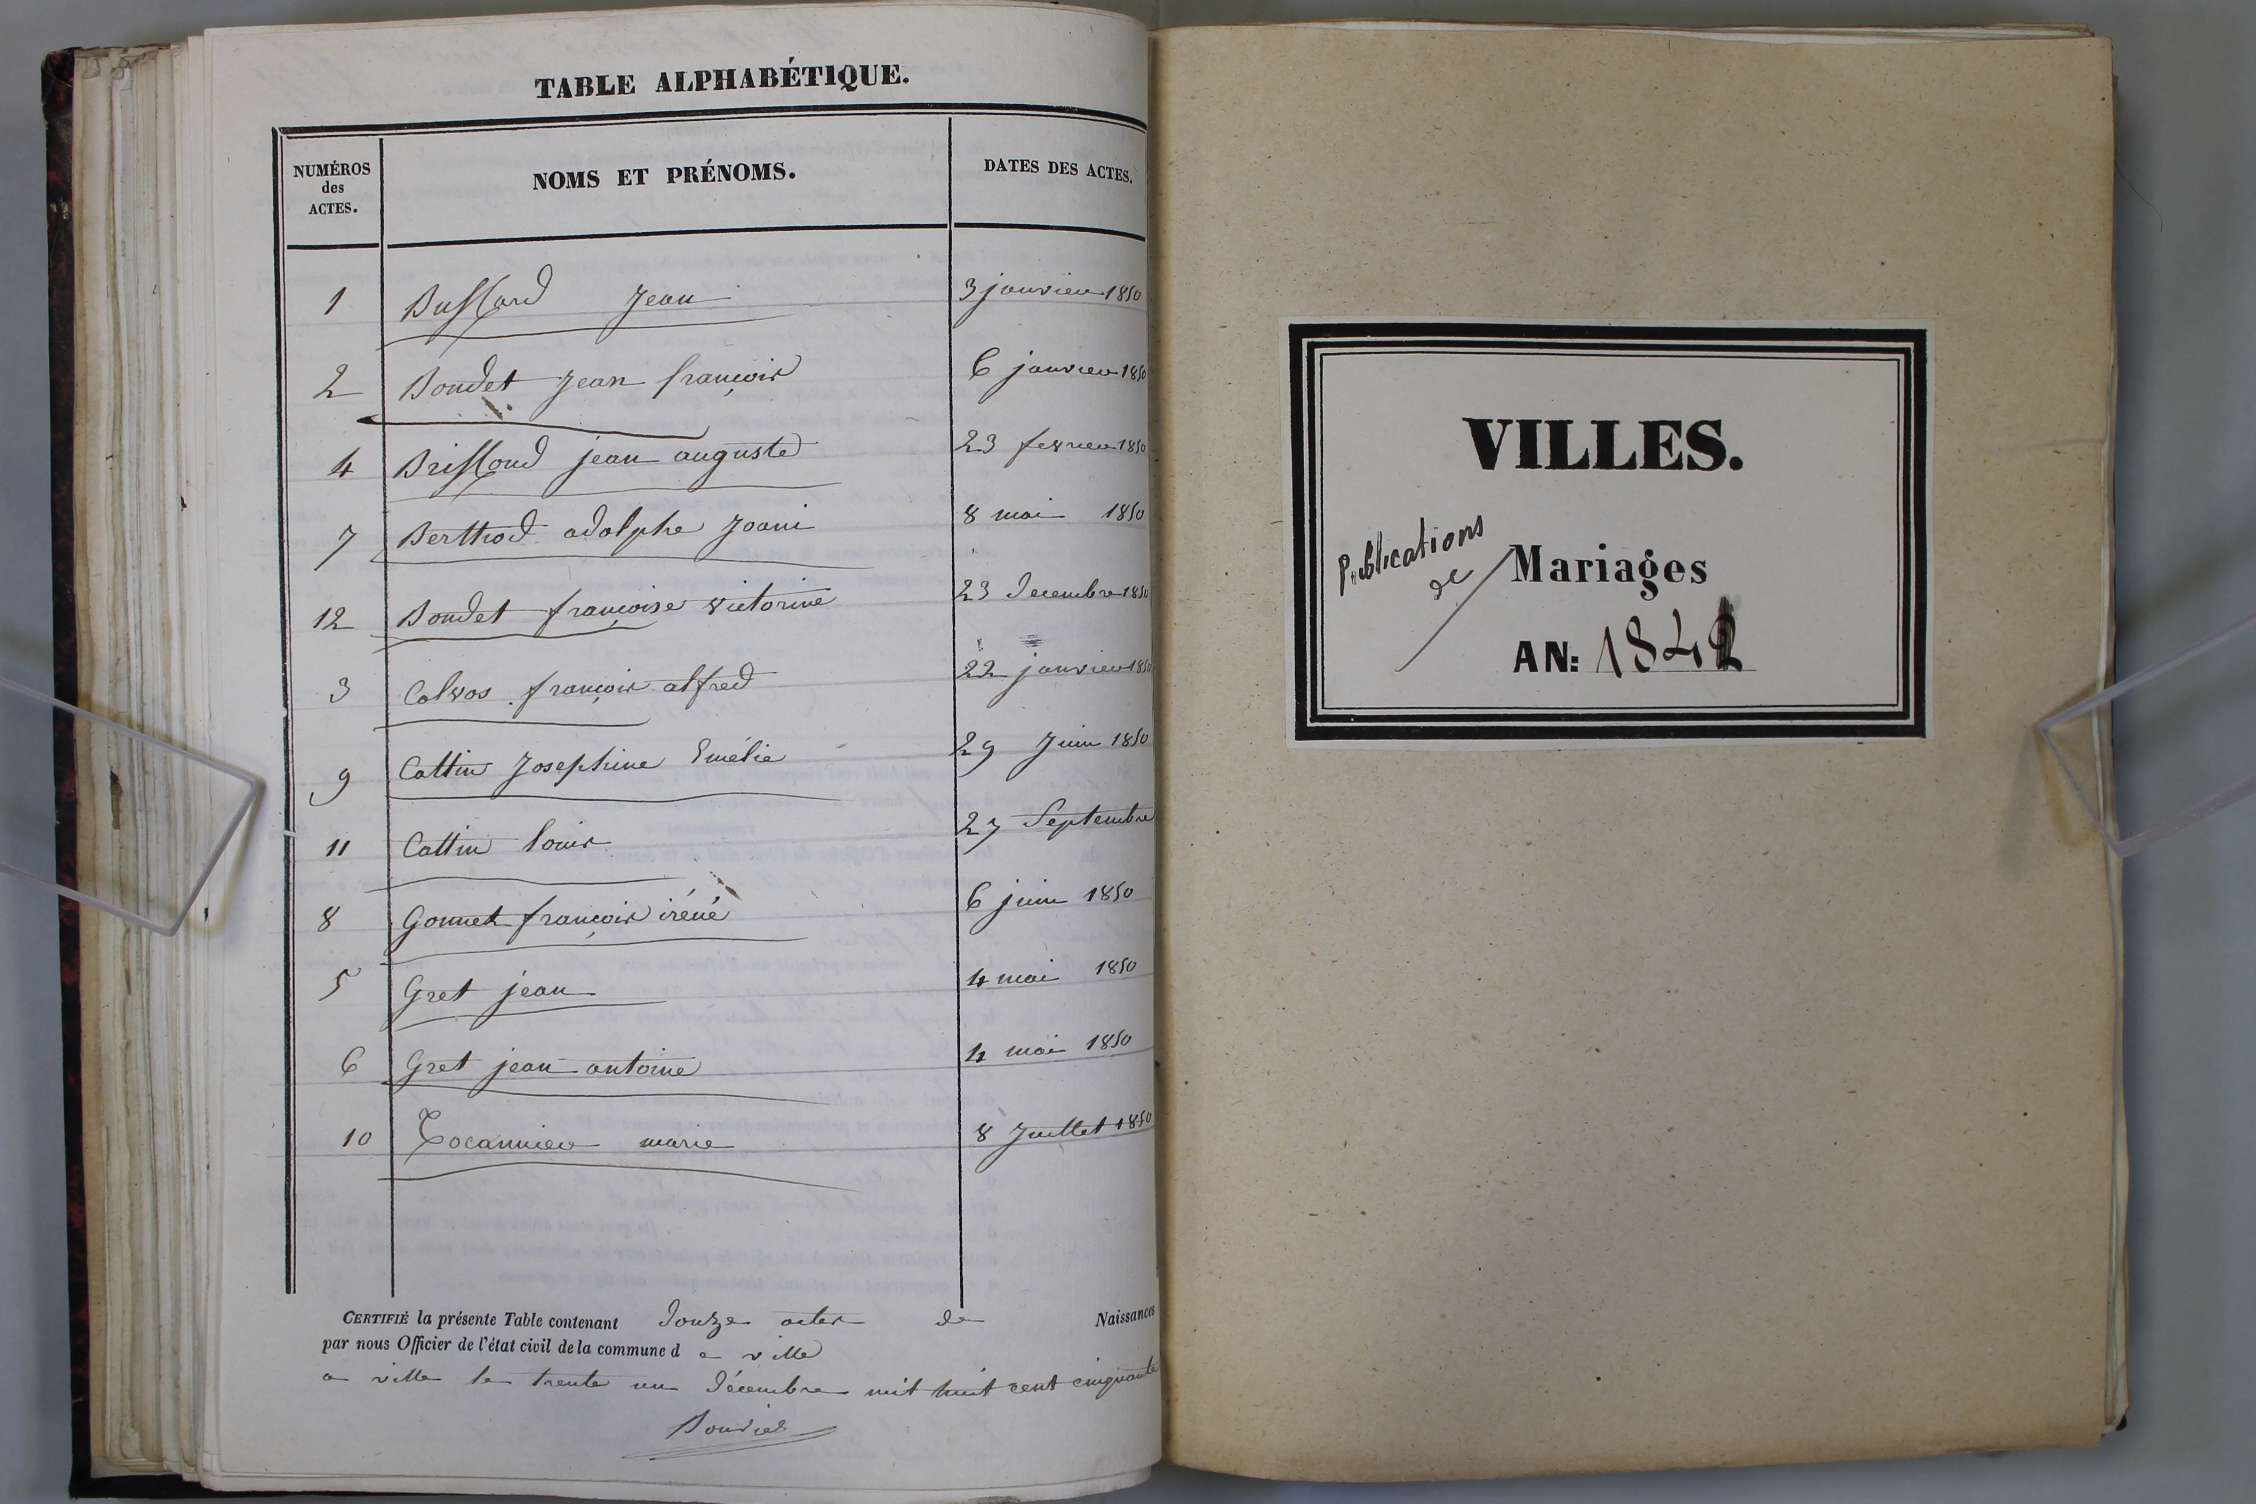 TABLE ALPHABÉTIQUE.
NUMÉROS des ACTES. NOMS ET PRÉNOMS. DATES DES ACTES.
1 Bussard Jean 3 janvier 1850
2 Boudet Jean françois 6 janvier 1850
4 Brissoud jean auguste 23 fevrier 1850
7 Berthod adolphe Joani 8 mai 1850
12 Boudet françoise victorine 23 decembre 1850
3 Calvos françois alfred 22 janvier 1850
9 Cattin Josephine Emélie 29 Juin 1850
11 Cattin louis 27 Septembre
8 Gonnet françois iréné 6 juin 1850
5 Gret jean 4 mai 1850
6 Gret jean antoine 4 mai 1850
10 Tocannier marie 8 Juillet 1850
CERTIFIÉ la présente Table contenant douze actes de Naissances
par nous Officier de l'état civil de la commune d e ville
a ville le trente un décembre mil huit cent cinquante
Bouvier
VILLES.
Publications
de Mariages
AN: 1842